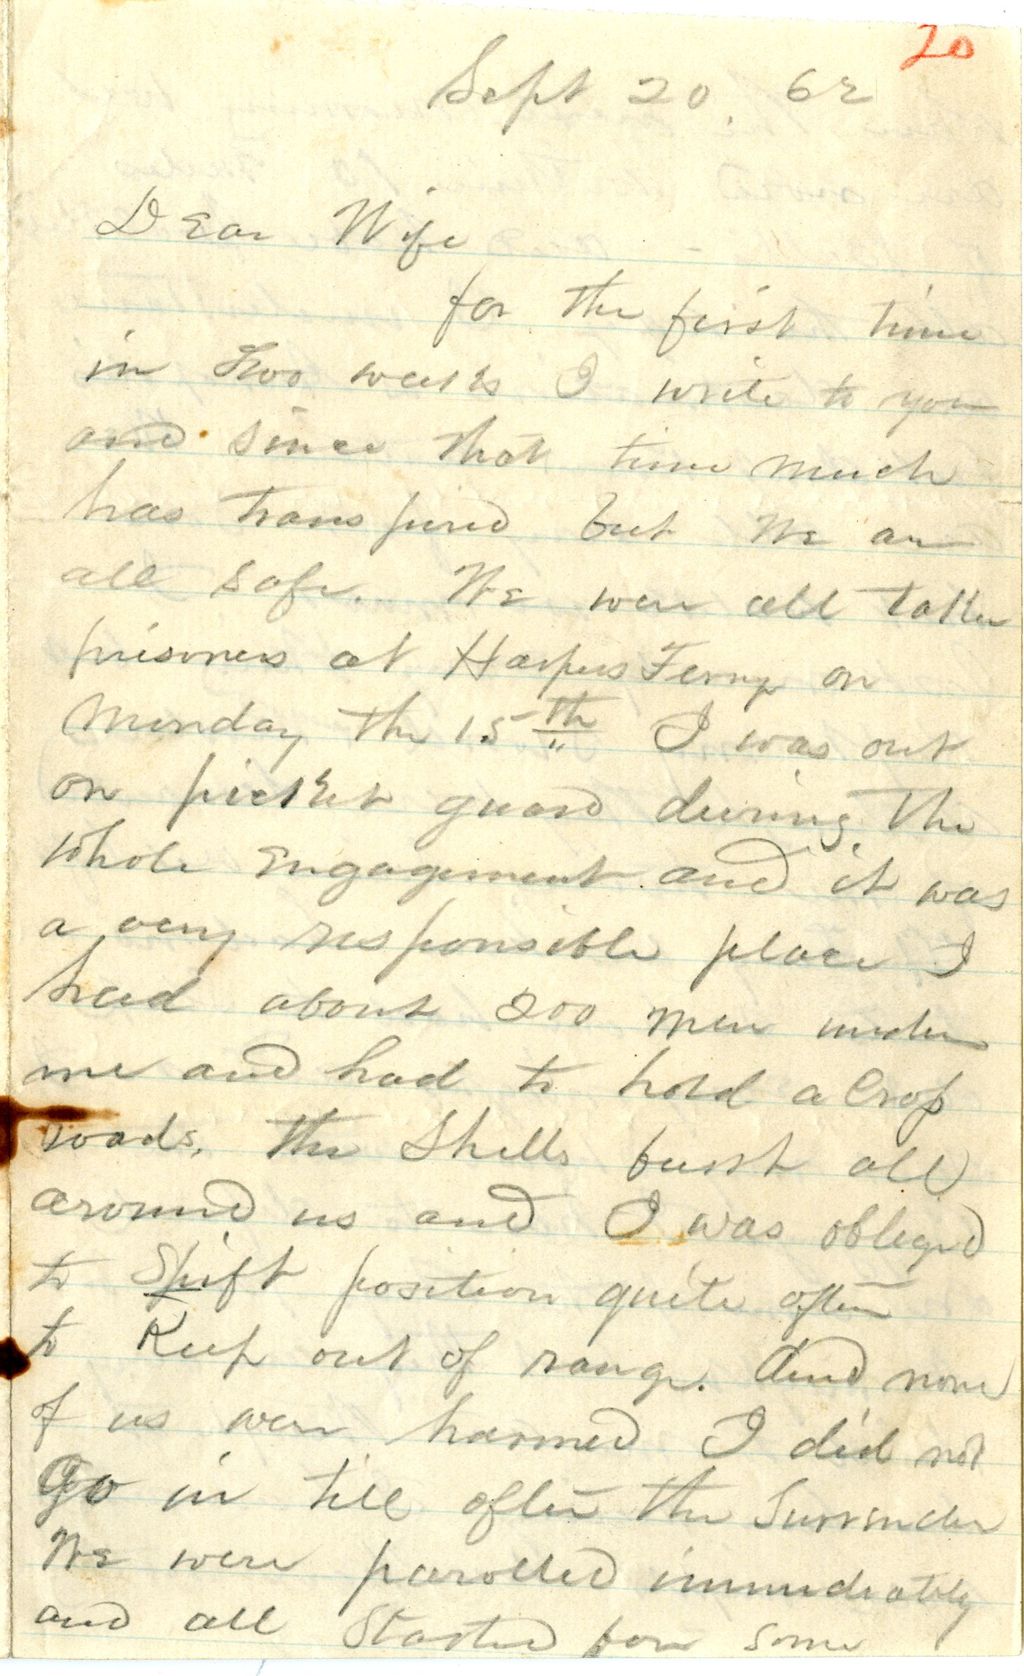 20
Sept 20. 62
Dear Wife
for the first time
in Two weeks I write to you
and since that time much
has transpired but We are
all safe. We were all taken
prisoners at Harpers Ferry on
Monday the 15th I was out
on picket guard during the
whole Engagement and it was
a very responsible place I
had about 200 men under
me and had to hold a Cross
roads. the Shells burst all
around us and I was obliged
to Shift position quite often
to Keep out of range. And none
of us were harmed I did not
Go in till after the Surrender
We were parolled immediately
and all Started for some